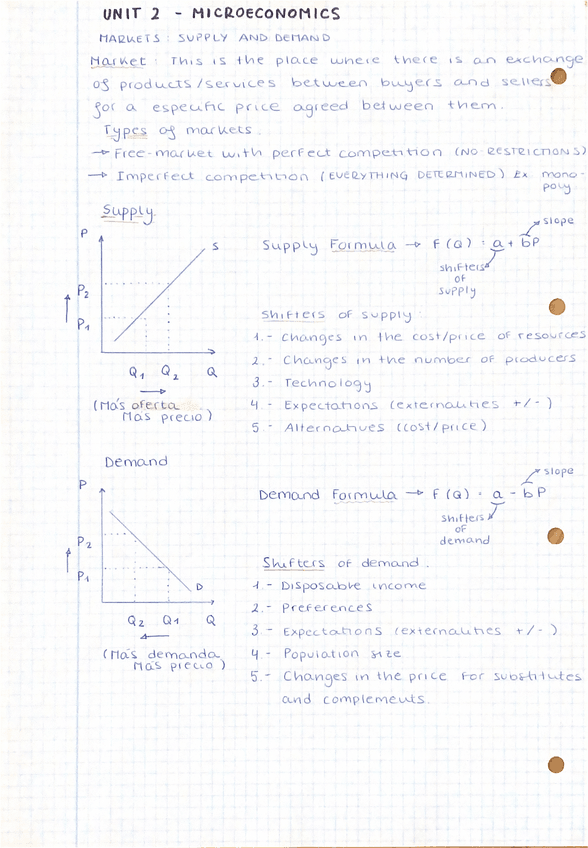 UNIT 2 - MICROECONOMICS
MARKETS: SUPPLY AND DEMAND
Market: This is the place where there is an exchange
of products/services between buyers and sellers
for a especific price agreed between them.
Types of markets.
→ Free-market with perfect competition (NO RESTRICTIONS)
→ Imperfect competition (EVERYTHING DETERMINED) Ex mono-
poly.
Supply.
P
S
P2
P1
Q1 Q2 Q
(Más oferta
Más precio)
Supply Formula → F(Q) : a + bP
slope
shifters
of
supply
Shifters of supply:
1.- Changes in the cost/price of resources
2.- Changes in the number of producers
3.- Technology
4.- Expectations (externalities +/-)
5.- Alternatives (cost/price)
Demand
P
P2
P1
D
Q2 Q1 Q
(Más demanda
Más precio)
Demand Formula → F(Q) = a - bP
slope
shifters
of
demand
Shifters of demand.
1.- Disposable income
2.- Preferences
3.- Expectations (externalities +/-)
4.- Population size
5.- Changes in the price for substitutes
and complements.